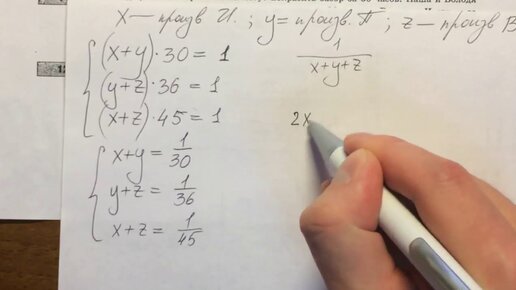 x — произв И. ; y = произв. П ; z — произв В
(x+y)·30 = 1
(y+z)·36 = 1
(x+z)·45 = 1
x+y = 1/30
y+z = 1/36
x+z = 1/45
1/(x+y+z)
2x